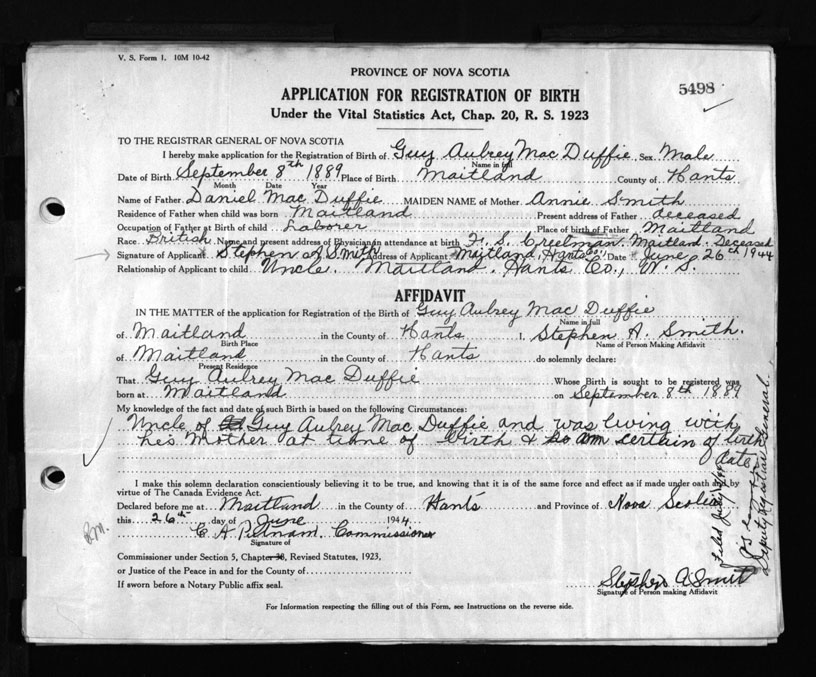 V. S. Form 1. 10M 10-42
PROVINCE OF NOVA SCOTIA
5498
APPLICATION FOR REGISTRATION OF BIRTH
Under the Vital Statistics Act, Chap. 20, R. S. 1923
TO THE REGISTRAR GENERAL OF NOVA SCOTIA
I hereby make application for the Registration of Birth of Guy Aubrey Mac Duffie Sex Male
Name in full
Date of Birth September 8th 1889 Place of Birth Maitland County of Hants
Month Date Year
Name of Father Daniel Mac Duffie MAIDEN NAME of Mother Annie Smith
Residence of Father when child was born Maitland Present address of Father deceased
Occupation of Father at Birth of child Laborer Place of birth of Father Maitland
Race British Name and present address of Physician in attendance at birth F. S. Creelman Maitland. Deceased
Signature of Applicant Stephen A Smith Address of Applicant Maitland, Hants Co. Date June 26th 1944
Relationship of Applicant to child Uncle. Maitland, Hants Co., N. S.
AFFIDAVIT
IN THE MATTER of the application for Registration of the Birth of Guy Aubrey Mac Duffie
Name in full
of Maitland in the County of Hants I, Stephen A. Smith.
Birth Place Name of Person Making Affidavit
of Maitland in the County of Hants do solemnly declare:
Present Residence
That Guy Aubrey Mac Duffie Whose Birth is sought to be registered was
born at Maitland on September 8th 1889
My knowledge of the fact and date of such Birth is based on the following Circumstances:
Uncle of Guy Aubrey Mac Duffie and was living with
his Mother at time of Birth & so am certain of birth
date
I make this solemn declaration conscientiously believing it to be true, and knowing that it is of the same force and effect as if made under oath and by
virtue of The Canada Evidence Act.
Declared before me at Maitland in the County of Hants and Province of Nova Scotia
this 26th day of June 1944.
C A Putnam Commissioner
Signature of
Commissioner under Section 5, Chapter 38, Revised Statutes, 1923,
or Justice of the Peace in and for the County of
If sworn before a Notary Public affix seal.
Stephen A Smith
Signature of Person making Affidavit
For Information respecting the filling out of this Form, see Instructions on the reverse side.
Filed July
Deputy Registrar General.